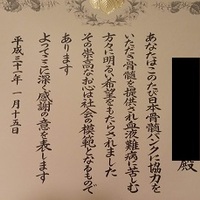 殿
あなたはこのたび日本骨髄バンクに協力を
いただき骨髄を提供され血液難病に苦しむ
方々に明るい希望をもたらされました
その崇高なお心は社会の模範となるもので
あります
よってここに深く感謝の意を表します
平成三十一年一月十五日